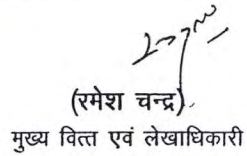 (रमेश चन्द्र)
मुख्य वित्त एवं लेखाधिकारी